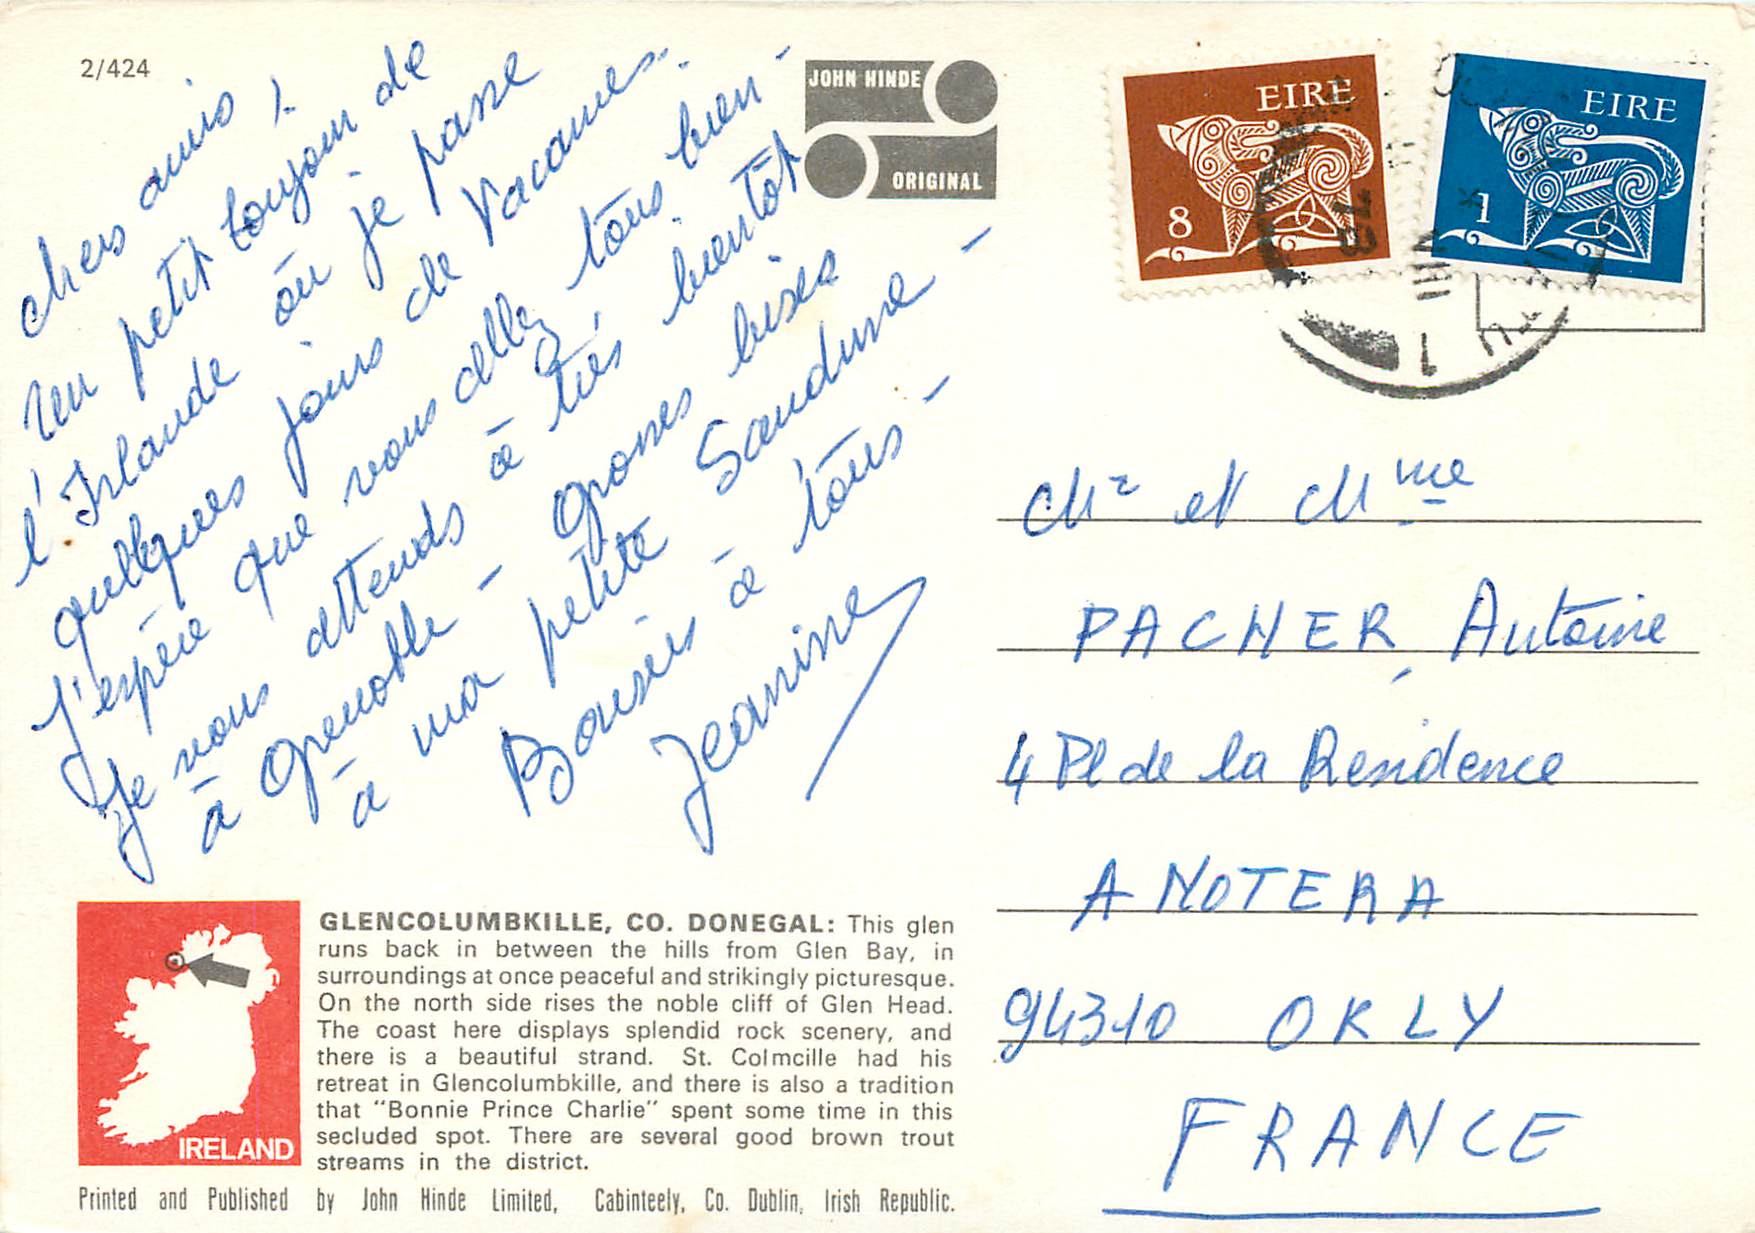 2/424
chers amis,
Un petit bonjour de
l'Irlande où je passe
quelques jours de Vacances.
J'espère que vous allez tous bien -
Je vous attends à très bientôt
à Grenoble - grosses bises
à ma petite Sandrine -
Bonsies à tous -
Jeanine
JOHN HINDE
ORIGINAL
EIRE
8
EIRE
1
Mr et Mme
PACHER, Antoine
4 Pl de la Residence
A NOTERA
94310 ORLY
FRANCE
IRELAND
GLENCOLUMBKILLE, CO. DONEGAL: This glen
runs back in between the hills from Glen Bay, in
surroundings at once peaceful and strikingly picturesque.
On the north side rises the noble cliff of Glen Head.
The coast here displays splendid rock scenery, and
there is a beautiful strand. St. Colmcille had his
retreat in Glencolumbkille, and there is also a tradition
that "Bonnie Prince Charlie" spent some time in this
secluded spot. There are several good brown trout
streams in the district.
Printed and Published by John Hinde Limited, Cabinteely, Co. Dublin, Irish Republic.